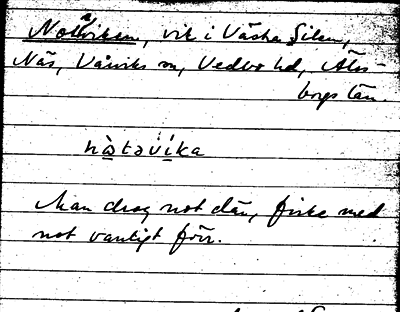 Notviken, vik i Västra Silen,
Näs, Vårviks sn, Vedbo hd, Älvs-
borgs län.
nòtəvíka
Man drog not där, fiske med
not vanligt förr.